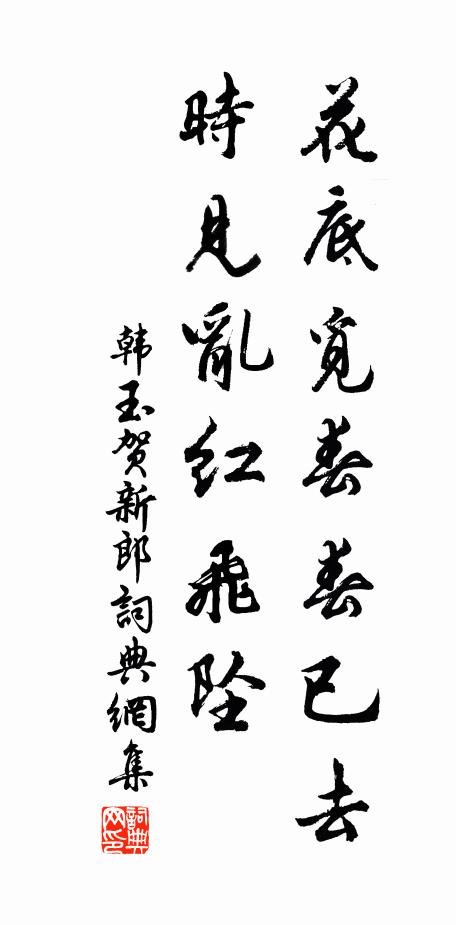 花底覓春春已去
時見亂紅飛墜
韩玉贺新郎詞典網集
詞典网印